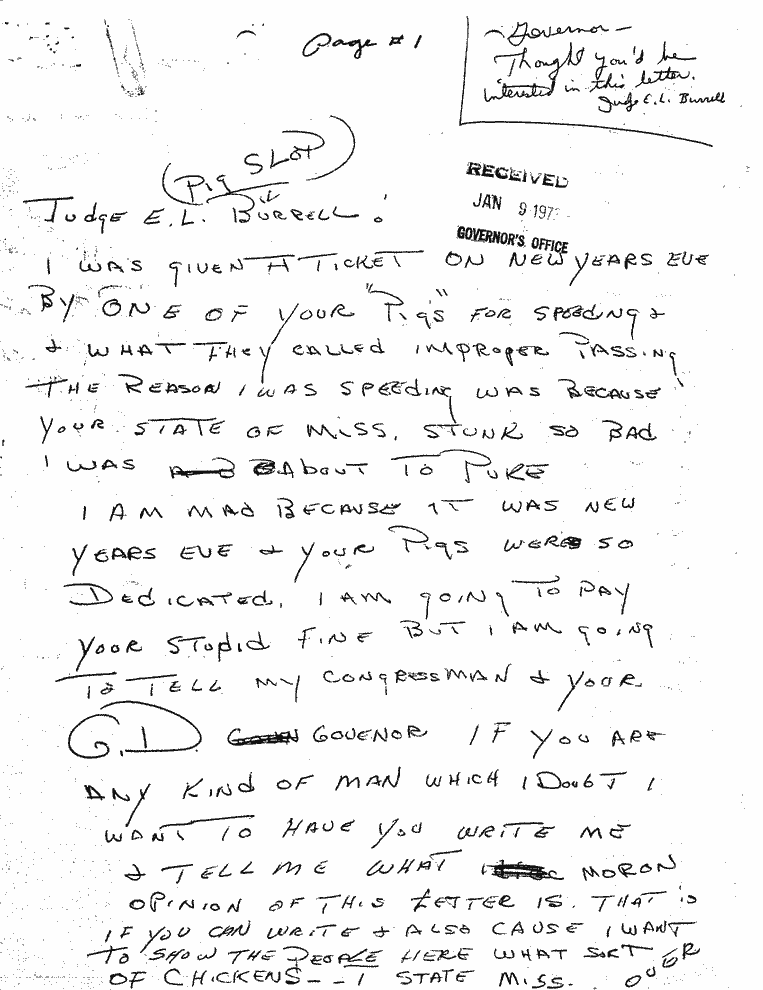 Page #1
Governor -
Thought you'd be
interested in this letter.
Judge E.L. Burrell
(Pig SLOP)
RECEIVED
JAN 9 197
GOVERNOR'S OFFICE
Judge E.L. BURRELL:
I WAS GIVEN A TICKET ON NEW YEARS EVE
BY ONE OF YOUR "Pigs" FOR SPEEDING &
& WHAT THEY CALLED IMPROPER PASSING
THE REASON I WAS SPEEDING WAS BECAUSE
YOUR STATE OF MISS. STUNK SO BAD
I WAS ABOUT TO PUKE
I AM MAD BECAUSE IT WAS NEW
YEARS EVE & YOUR Pigs WERE SO
DEDICATED. I AM GOING TO PAY
YOUR STUPID FINE BUT I AM GOING
TO TELL MY CONGRESSMAN & YOUR
G.D. GOVENOR IF YOU ARE
ANY KIND OF MAN WHICH I DOUBT I
WANT TO HAVE YOU WRITE ME
& TELL ME WHAT MORON
OPINION OF THIS LETTER IS. THAT IS
IF YOU CAN WRITE & ALSO CAUSE I WANT
TO SHOW THE PEOPLE HERE WHAT SORT
OF CHICKENS--T STATE MISS. OVER